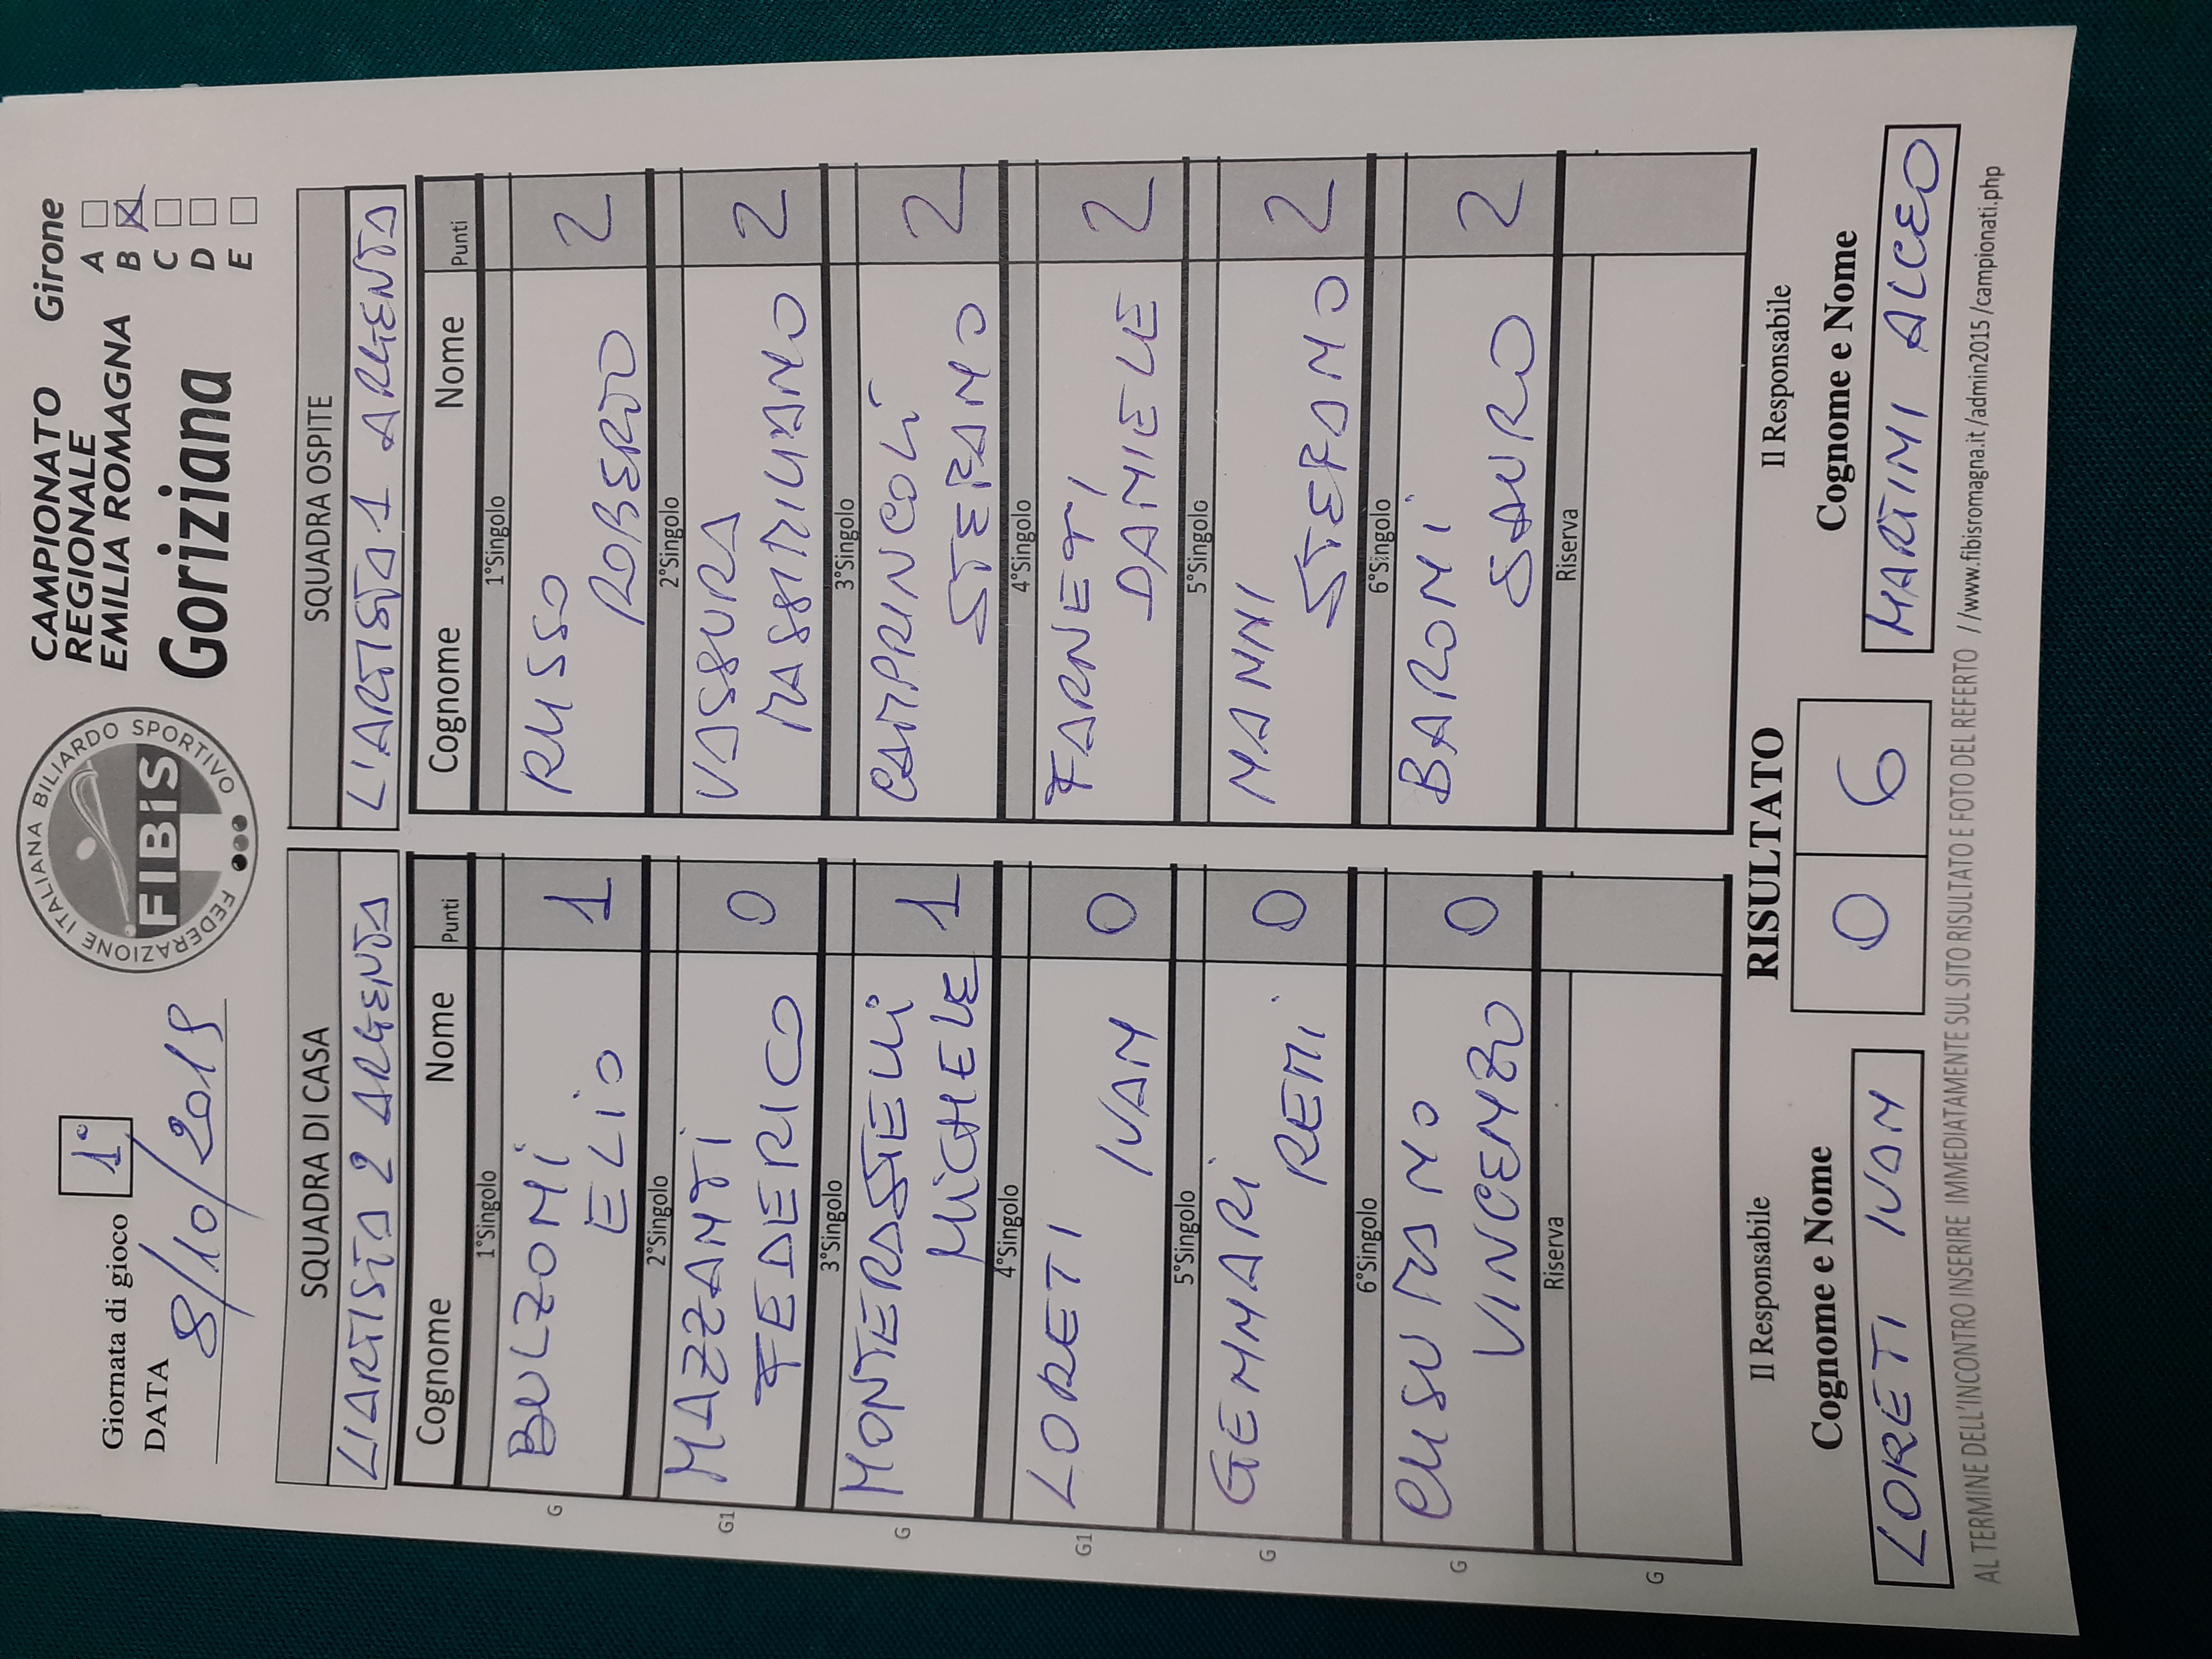 Giornata di gioco 1°
DATA 8/10/2019
FEDERAZIONE ITALIANA BILIARDO SPORTIVO
FIBiS
CAMPIONATO
REGIONALE
EMILIA ROMAGNA
Goriziana
Girone
A
B X
C
D
E
SQUADRA DI CASA
L'ARTISTA 2 ARGENTA
Cognome Nome Punti
1°Singolo
G BULZONI
ELIO 1
2°Singolo
G1 MAZZANTI
FEDERICO 0
3°Singolo
G MONTERASTELLI
MICHELE 1
4°Singolo
G1 LORETI IVAN 0
5°Singolo
G GENNARI
REMI. 0
6°Singolo
G CUSUMANO
VINCENZO 0
Riserva
G
SQUADRA OSPITE
L'ARTISTA 1 ARGENTA
Cognome Nome Punti
1°Singolo
RUSSO
ROBERTO 2
2°Singolo
VASSURA
MASSIMILIANO 2
3°Singolo
CAMPRINCOLI
STEFANO 2
4°Singolo
FARNETI
DANIELE 2
5°Singolo
MANNI
STEFANO 2
6°Singolo
BARONI
SAURO 2
Riserva
Il Responsabile RISULTATO Il Responsabile
Cognome e Nome 0 6 Cognome e Nome
LORETI IVAN MARTINI ALCEO
AL TERMINE DELL'INCONTRO INSERIRE IMMEDIATAMENTE SUL SITO RISULTATO E FOTO DEL REFERTO //www.fibisromagna.it/admin2015/campionati.php